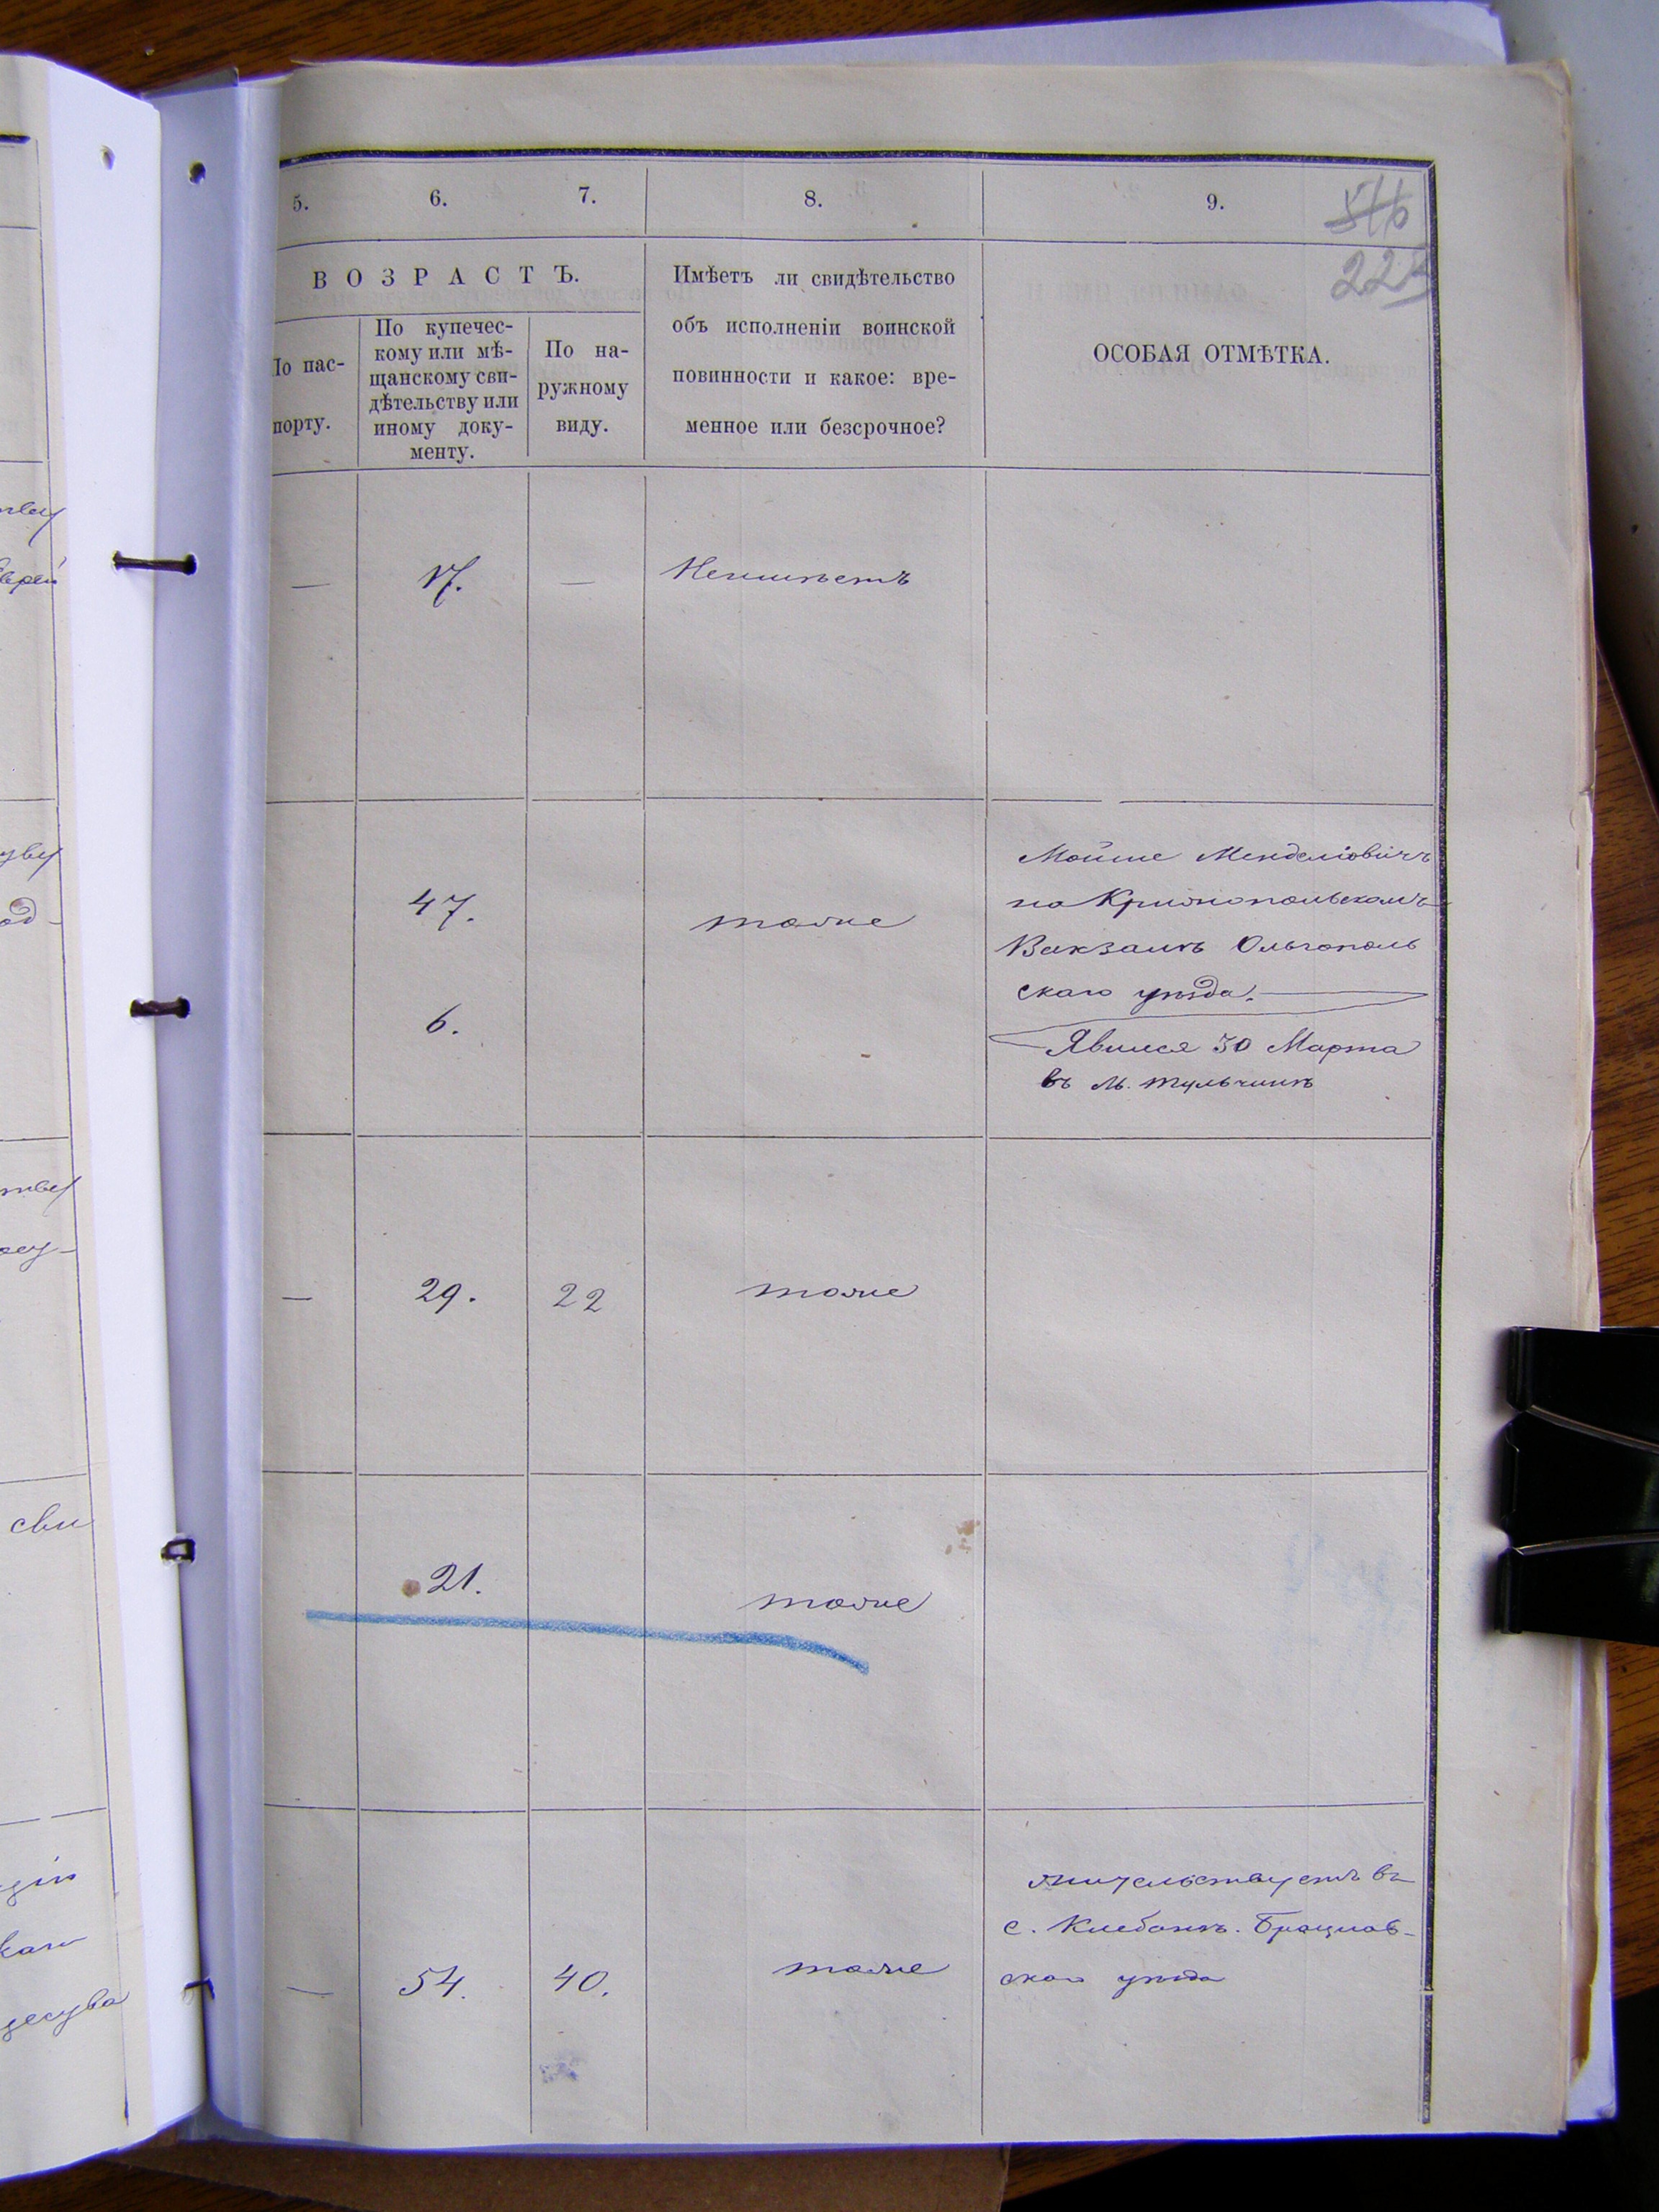 5.
6.
7.
8.
9.
516
223
ВОЗРАСТЪ.
По пас-
порту.
По купечес-
кому или мѣ-
щанскому сви-
дѣтельству или
иному доку-
менту.
По на-
ружному
виду.
Имѣетъ ли свидѣтельство
объ исполненіи воинской
повинности и какое: вре-
менное или безсрочное?
ОСОБАЯ ОТМѢТКА.
— 17. — Неимѣетъ
47.
6.
тоже
Мойше Менделіовичъ
на Крижопольскомъ
Вакзалѣ Ольгополь
скаго уѣзда.
Явился 30 Марта
въ м. Тульчинѣ
— 29. 22 тоже
21. тоже
— 54. 40. тоже
жительствуетъ въ
с. Клебанѣ. Брацлав-
скаго уѣзда
сви